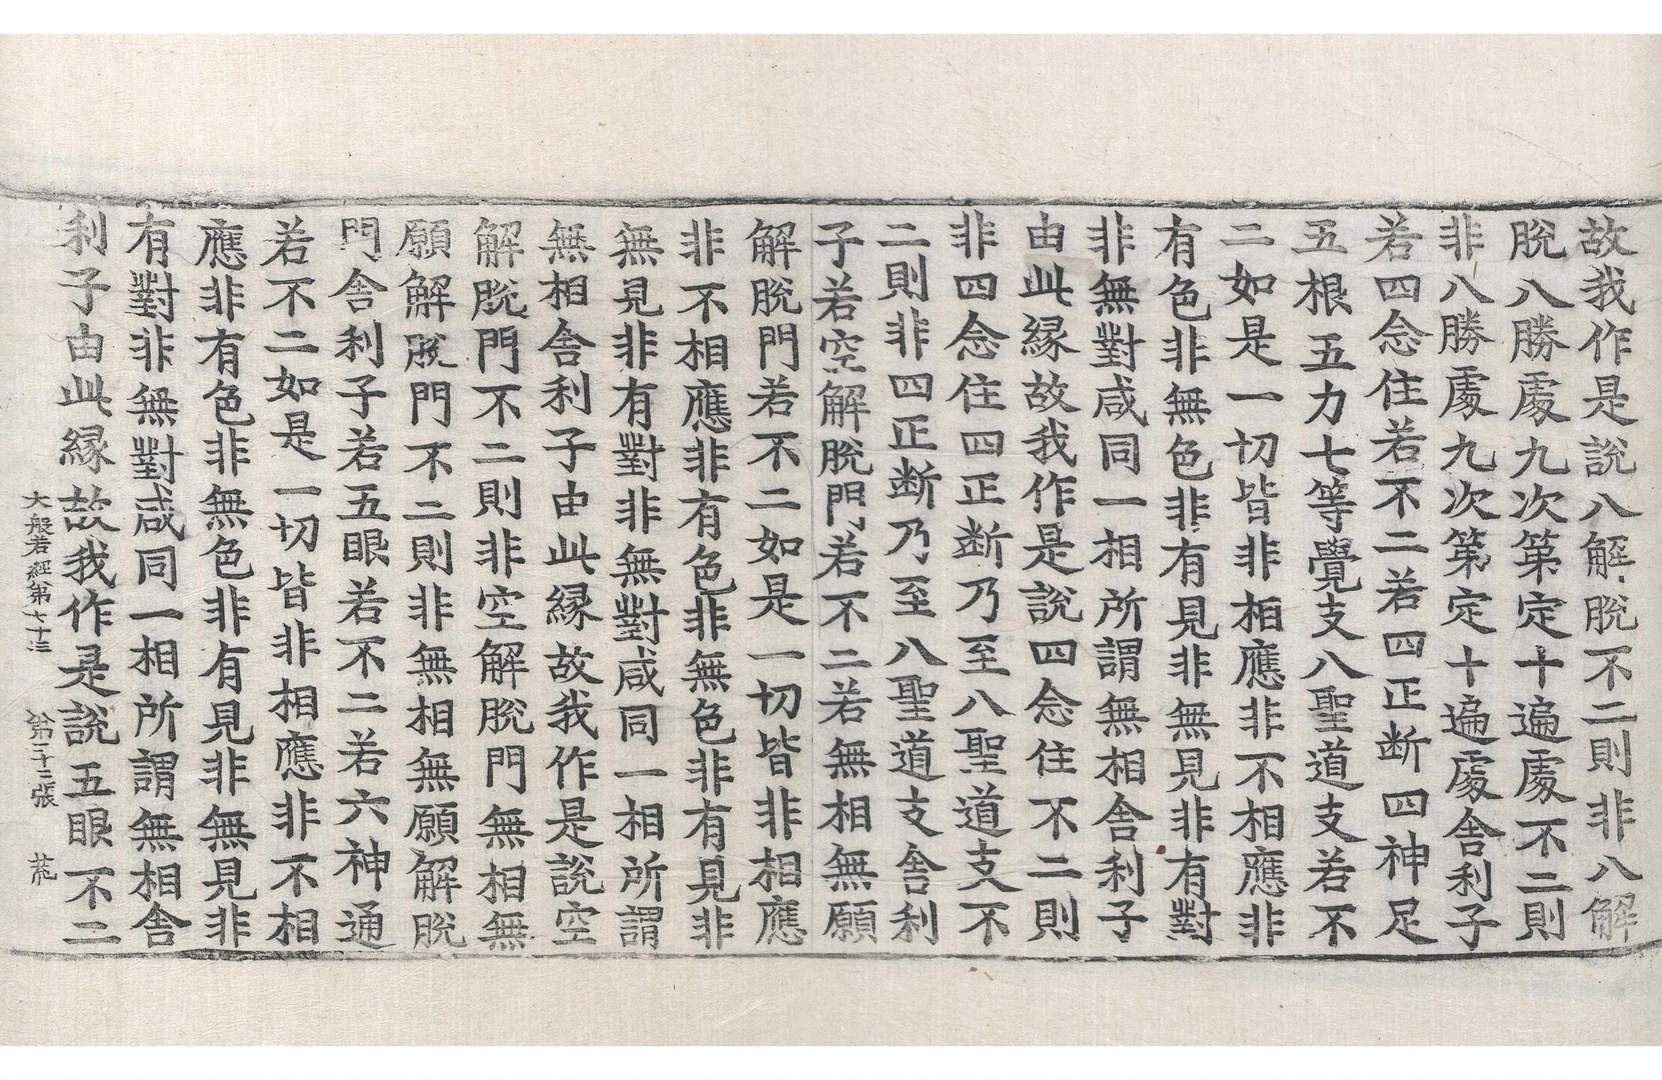 故我作是說八解脫不二則非八解
脫八勝處九次第定十遍處不二則
非八勝處九次第定十遍處舍利子
若四念住若不二若四正断四神足
五根五力七等覺支八聖道支若不
二如是一切皆非相應非不相應非
有色非無色非有見非無見非有對
非無對咸同一相所謂無相舍利子
由此縁故我作是說四念住不二則
非四念住四正断乃至八聖道支不
二則非四正断乃至八聖道支舍利
子若空解脫門若不二若無相無願
解脫門若不二如是一切皆非相應
非不相應非有色非無色非有見非
無見非有對非無對咸同一相所謂
無相舍利子由此縁故我作是說空
解脫門不二則非空解脫門無相無
願解脫門不二則非無相無願解脫
門舍利子若五眼若不二若六神通
若不二如是一切皆非相應非不相
應非有色非無色非有見非無見非
有對非無對咸同一相所謂無相舍
利子由此縁故我作是說五眼不二
大般若經第七十三 第二十二張